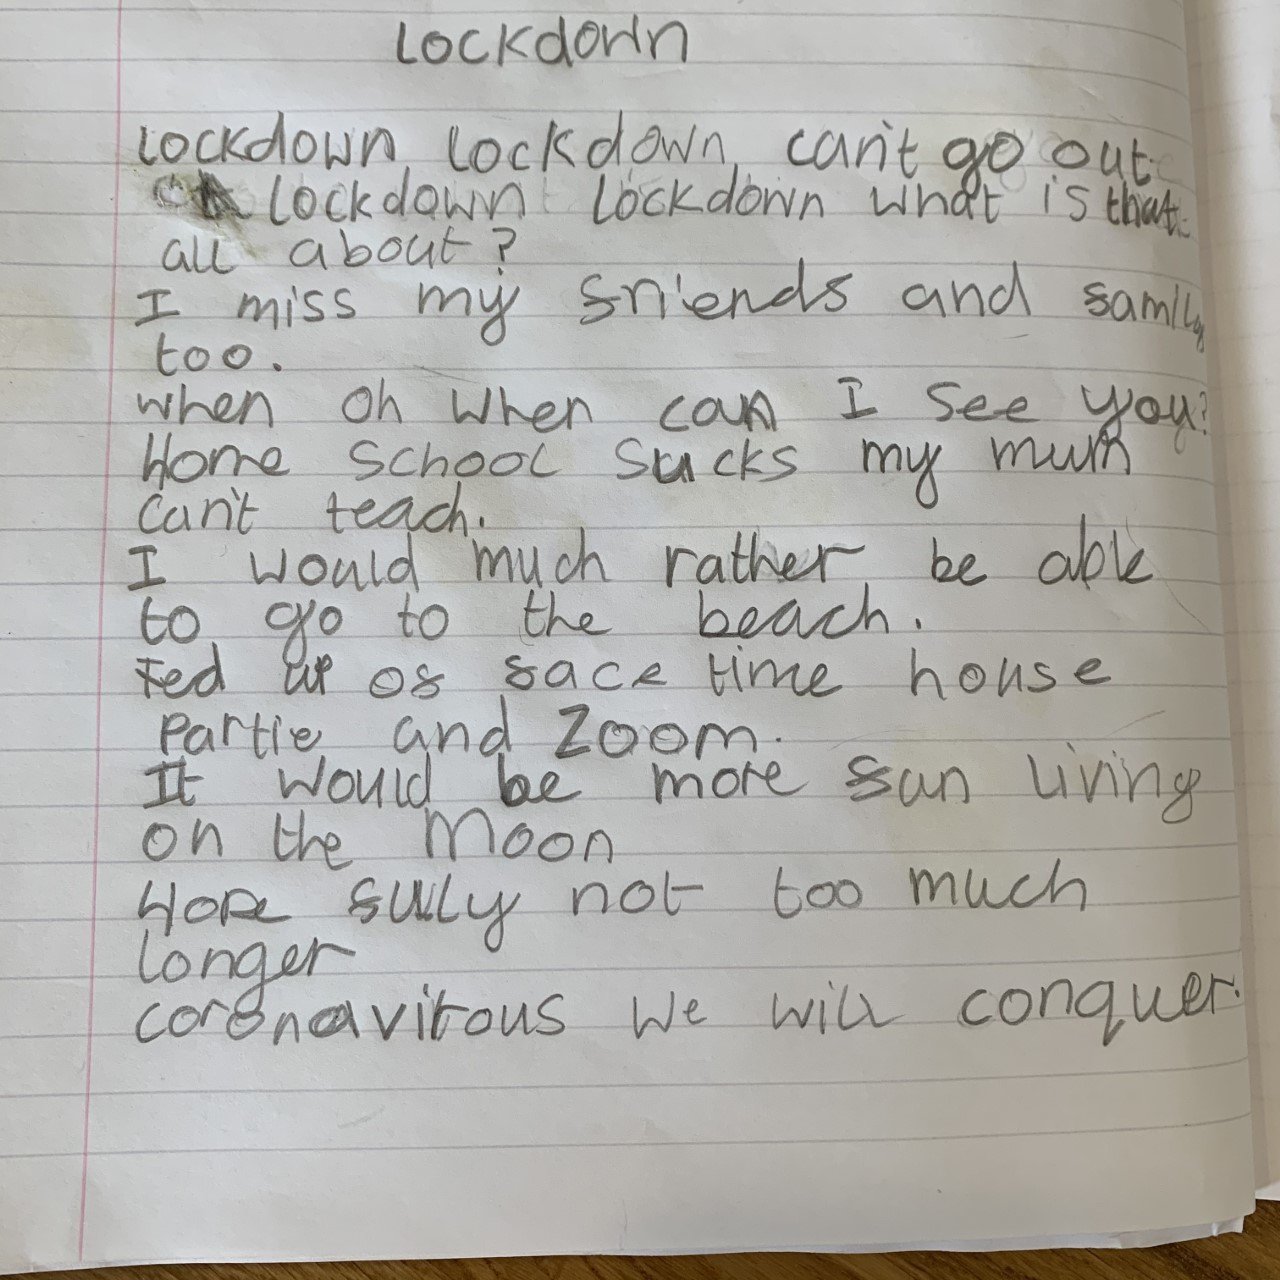 Lockdown
Lockdown, Lockdown, can't go out.
Lockdown Lockdown what is that
all about?
I miss my friends and family
too.
when oh when can I see you?
Home school sucks my mum
can't teach.
I would much rather be able
to go to the beach.
Fed up of face time house
Partie and Zoom.
It would be more fun living
on the Moon
Hopefully not too much
longer
coronavirous we will conquer.